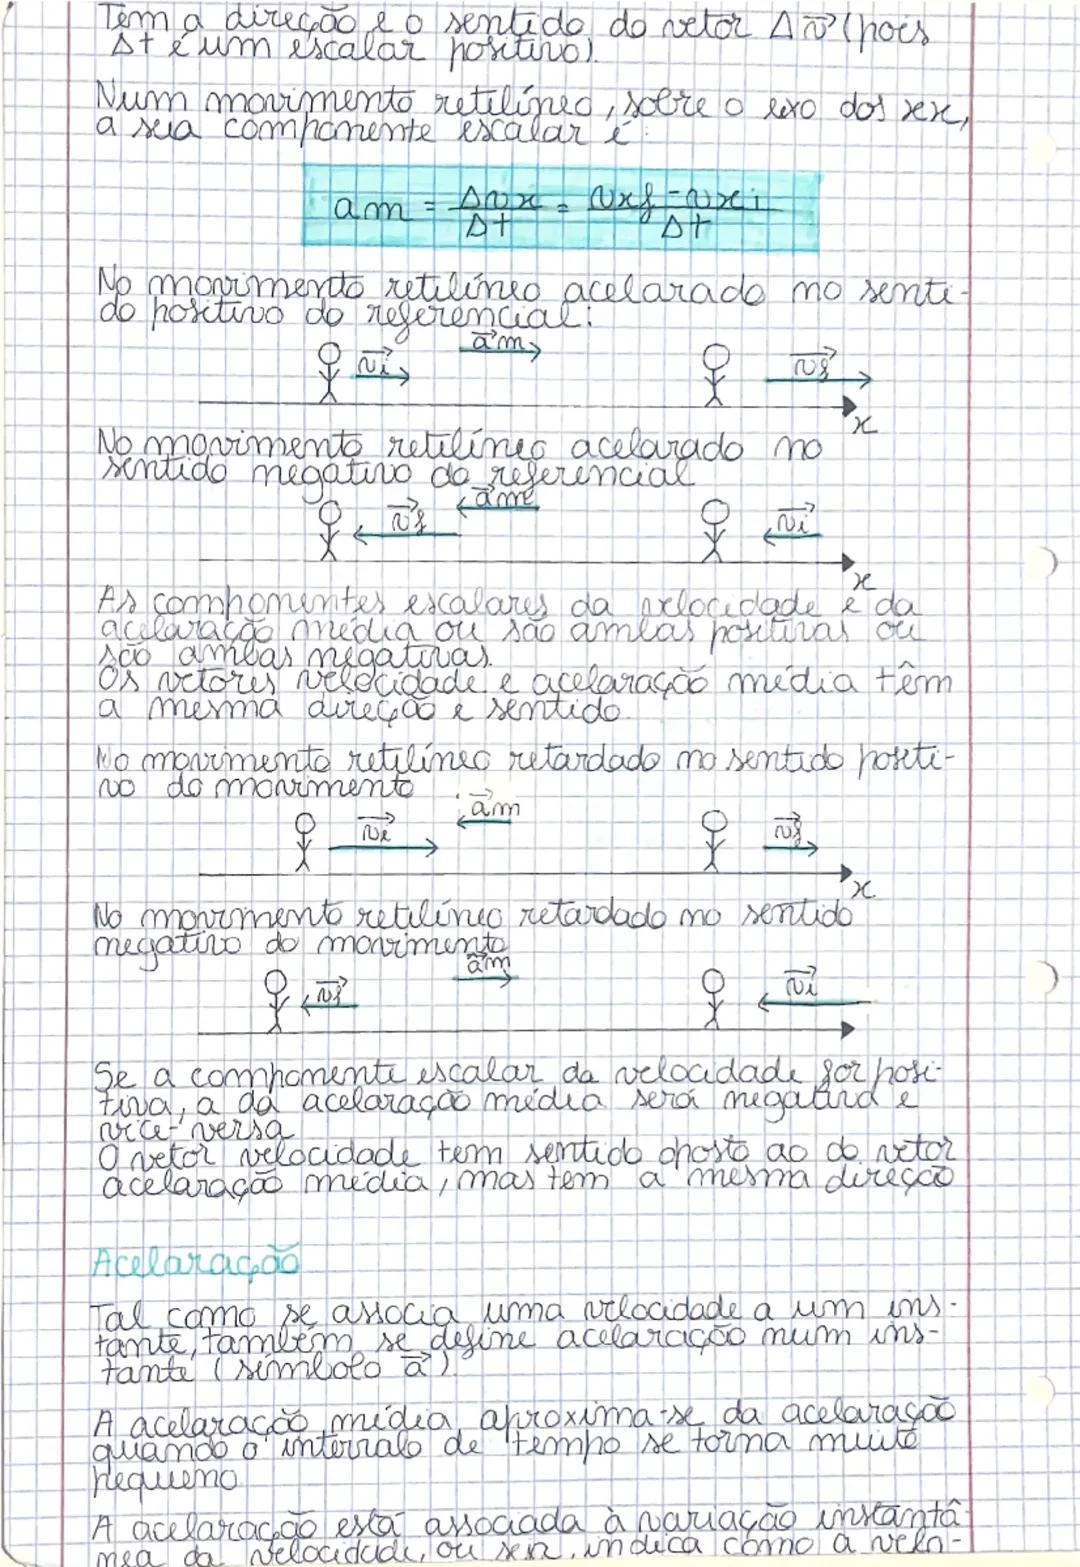 Tem a direção e o sentido do vetor Δv⃗ (pois
Δt é um escalar positivo).
Num movimento retilíneo, sobre o eixo dos xx,
a sua componente escalar é:
am = Δvx/Δt = vxf - vxi/Δt
No movimento retilíneo acelarado no senti-
do positivo do referencial:
v⃗i a⃗m v⃗f
x
No movimento retilíneo acelarado no
sentido negativo do referencial
v⃗f a⃗m v⃗i
x
As componentes escalares da velocidade e da
acelaração média ou são ambas positivas ou
são ambas negativas.
Os vetores velocidade e acelaração média têm
a mesma direção e sentido.
No movimento retilíneo retardado no sentido positi-
vo do movimento
v⃗i a⃗m v⃗f
x
No movimento retilíneo retardado no sentido
negativo do movimento
v⃗f a⃗m v⃗i
Se a componente escalar da velocidade for posi-
tiva, a da acelaração média será negativa e
vice-versa
O vetor velocidade tem sentido oposto ao do vetor
acelaração média, mas tem a mesma direção
Acelaração
Tal como se associa uma velocidade a um ins-
tante, também se define acelaração num ins-
tante (símbolo a⃗).
A acelaração média aproxima-se da acelaração
quando o intervalo de tempo se torna muito
pequeno
A acelaração está associada à variação instantâ-
nea da velocidade, ou seja, indica como a velo-